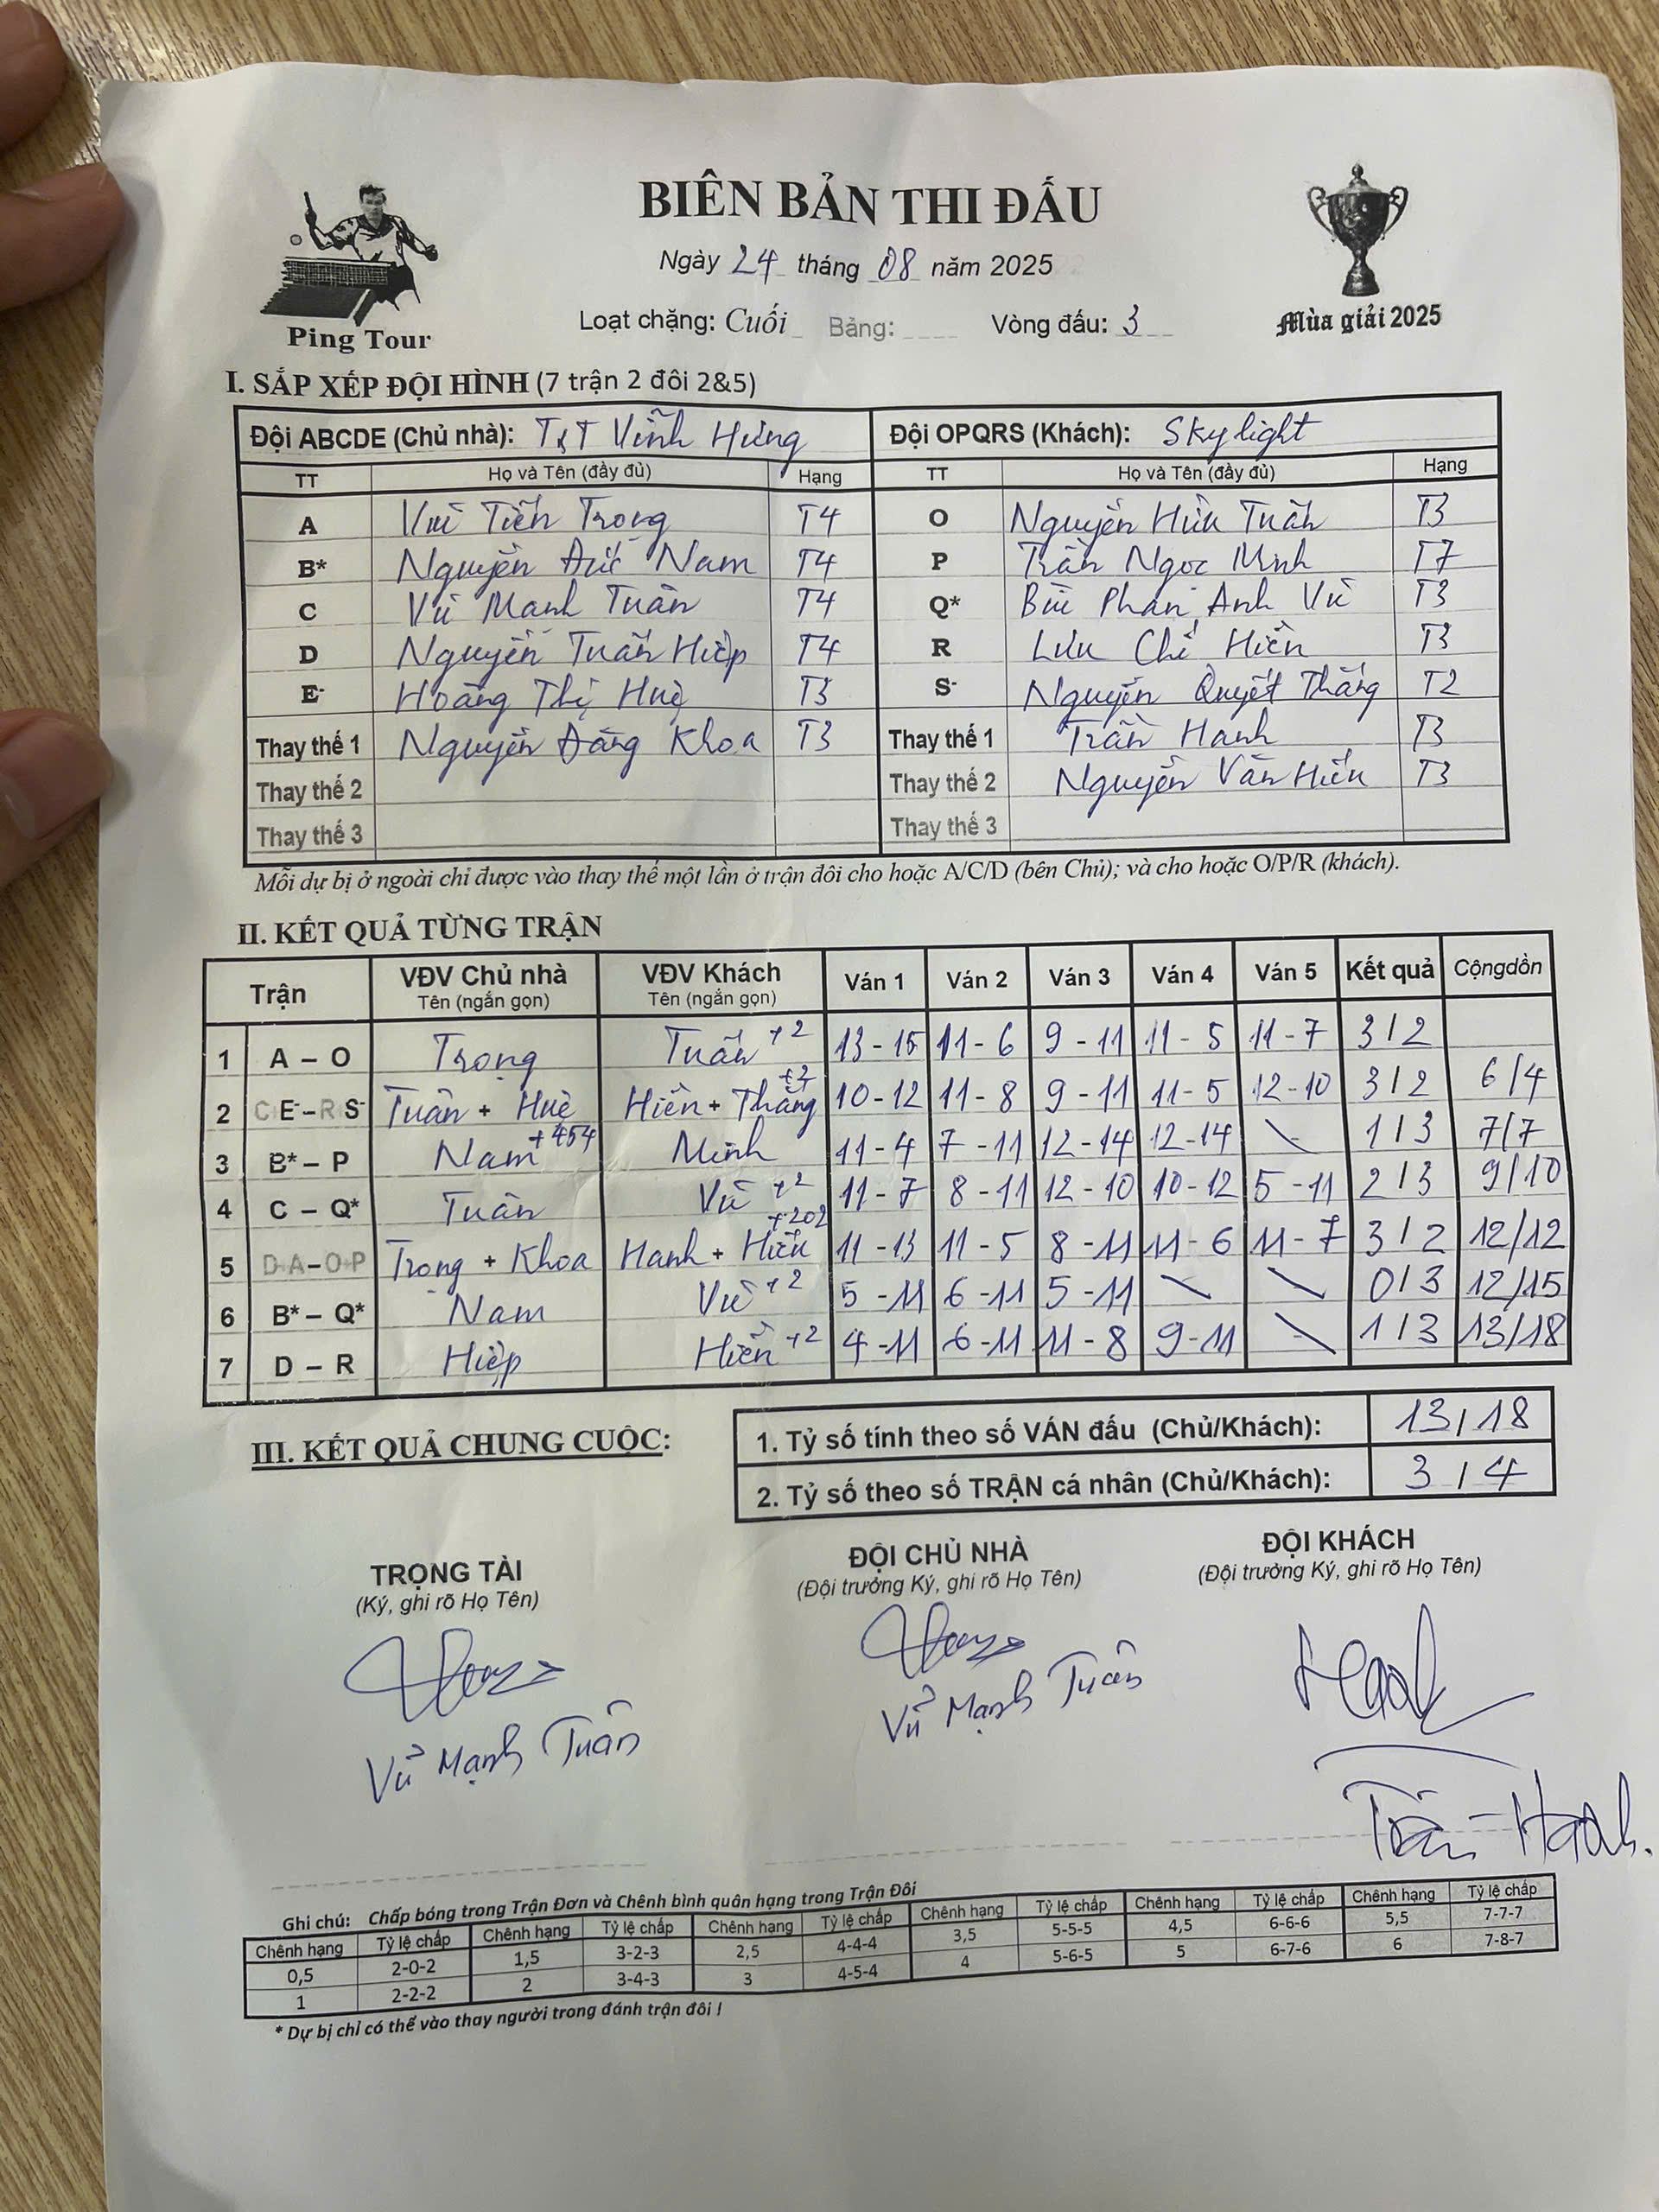 BIÊN BẢN THI ĐẤU
Ngày 24 tháng 08 năm 2025
Ping Tour
Loạt chặng: Cuối Bảng: Vòng đấu: 3
Mùa giải 2025
I. SẮP XẾP ĐỘI HÌNH (7 trận 2 đôi 2&5)
Đội ABCDE (Chủ nhà): T&T Vĩnh Hưng Đội OPQRS (Khách): Skylight
TT Họ và Tên (đầy đủ) Hạng TT Họ và Tên (đầy đủ) Hạng
A Vũ Tiến Trọng T4 O Nguyễn Hữu Tuấn T3
B* Nguyễn Đức Nam T4 P Trần Ngọc Minh T7
C Vũ Mạnh Tuân T4 Q* Bùi Phan Anh Vũ T3
D Nguyễn Tuấn Hiệp T4 R Lưu Chí Hiền T3
E- Hoàng Thị Huệ T3 S- Nguyễn Quyết Thắng T2
Thay thế 1 Nguyễn Đăng Khoa T3 Thay thế 1 Trần Hanh T3
Thay thế 2 Thay thế 2 Nguyễn Văn Hiếu T3
Thay thế 3 Thay thế 3
Mỗi dự bị ở ngoài chỉ được vào thay thế một lần ở trận đôi cho hoặc A/C/D (bên Chủ); và cho hoặc O/P/R (khách).
II. KẾT QUẢ TỪNG TRẬN
Trận VĐV Chủ nhà VĐV Khách Ván 1 Ván 2 Ván 3 Ván 4 Ván 5 Kết quả Cộngdồn
Tên (ngắn gọn) Tên (ngắn gọn)
1 A – O Trọng Tuấn +2 13-15 11-6 9-11 11-5 11-7 3/2
2 C E- – R S- Tuân + Huệ Hiền + Thắng +2 10-12 11-8 9-11 11-5 12-10 3/2 6/4
3 B* – P Nam +454 Minh 11-4 7-11 12-14 12-14 \ 1/3 7/7
4 C – Q* Tuân Vũ +2 11-7 8-11 12-10 10-12 5-11 2/3 9/10
5 D A – O P Trọng + Khoa Hanh + Hiếu +202 11-13 11-5 8-11 11-6 11-7 3/2 12/12
6 B* – Q* Nam Vũ +2 5-11 6-11 5-11 \ \ 0/3 12/15
7 D – R Hiệp Hiền +2 4-11 6-11 11-8 9-11 \ 1/3 13/18
III. KẾT QUẢ CHUNG CUỘC:
1. Tỷ số tính theo số VÁN đấu (Chủ/Khách): 13/18
2. Tỷ số theo số TRẬN cá nhân (Chủ/Khách): 3/4
TRỌNG TÀI ĐỘI CHỦ NHÀ ĐỘI KHÁCH
(Ký, ghi rõ Họ Tên) (Đội trưởng Ký, ghi rõ Họ Tên) (Đội trưởng Ký, ghi rõ Họ Tên)
Vũ Mạnh Tuân Vũ Mạnh Tuân Trần Hanh.
Ghi chú: Chấp bóng trong Trận Đơn và Chênh bình quân hạng trong Trận Đôi
Chênh hạng Tỷ lệ chấp Chênh hạng Tỷ lệ chấp Chênh hạng Tỷ lệ chấp Chênh hạng Tỷ lệ chấp Chênh hạng Tỷ lệ chấp Chênh hạng Tỷ lệ chấp
0,5 2-0-2 1,5 3-2-3 2,5 4-4-4 3,5 5-5-5 4,5 6-6-6 5,5 7-7-7
1 2-2-2 2 3-4-3 3 4-5-4 4 5-6-5 5 6-7-6 6 7-8-7
* Dự bị chỉ có thể vào thay người trong đánh trận đôi !